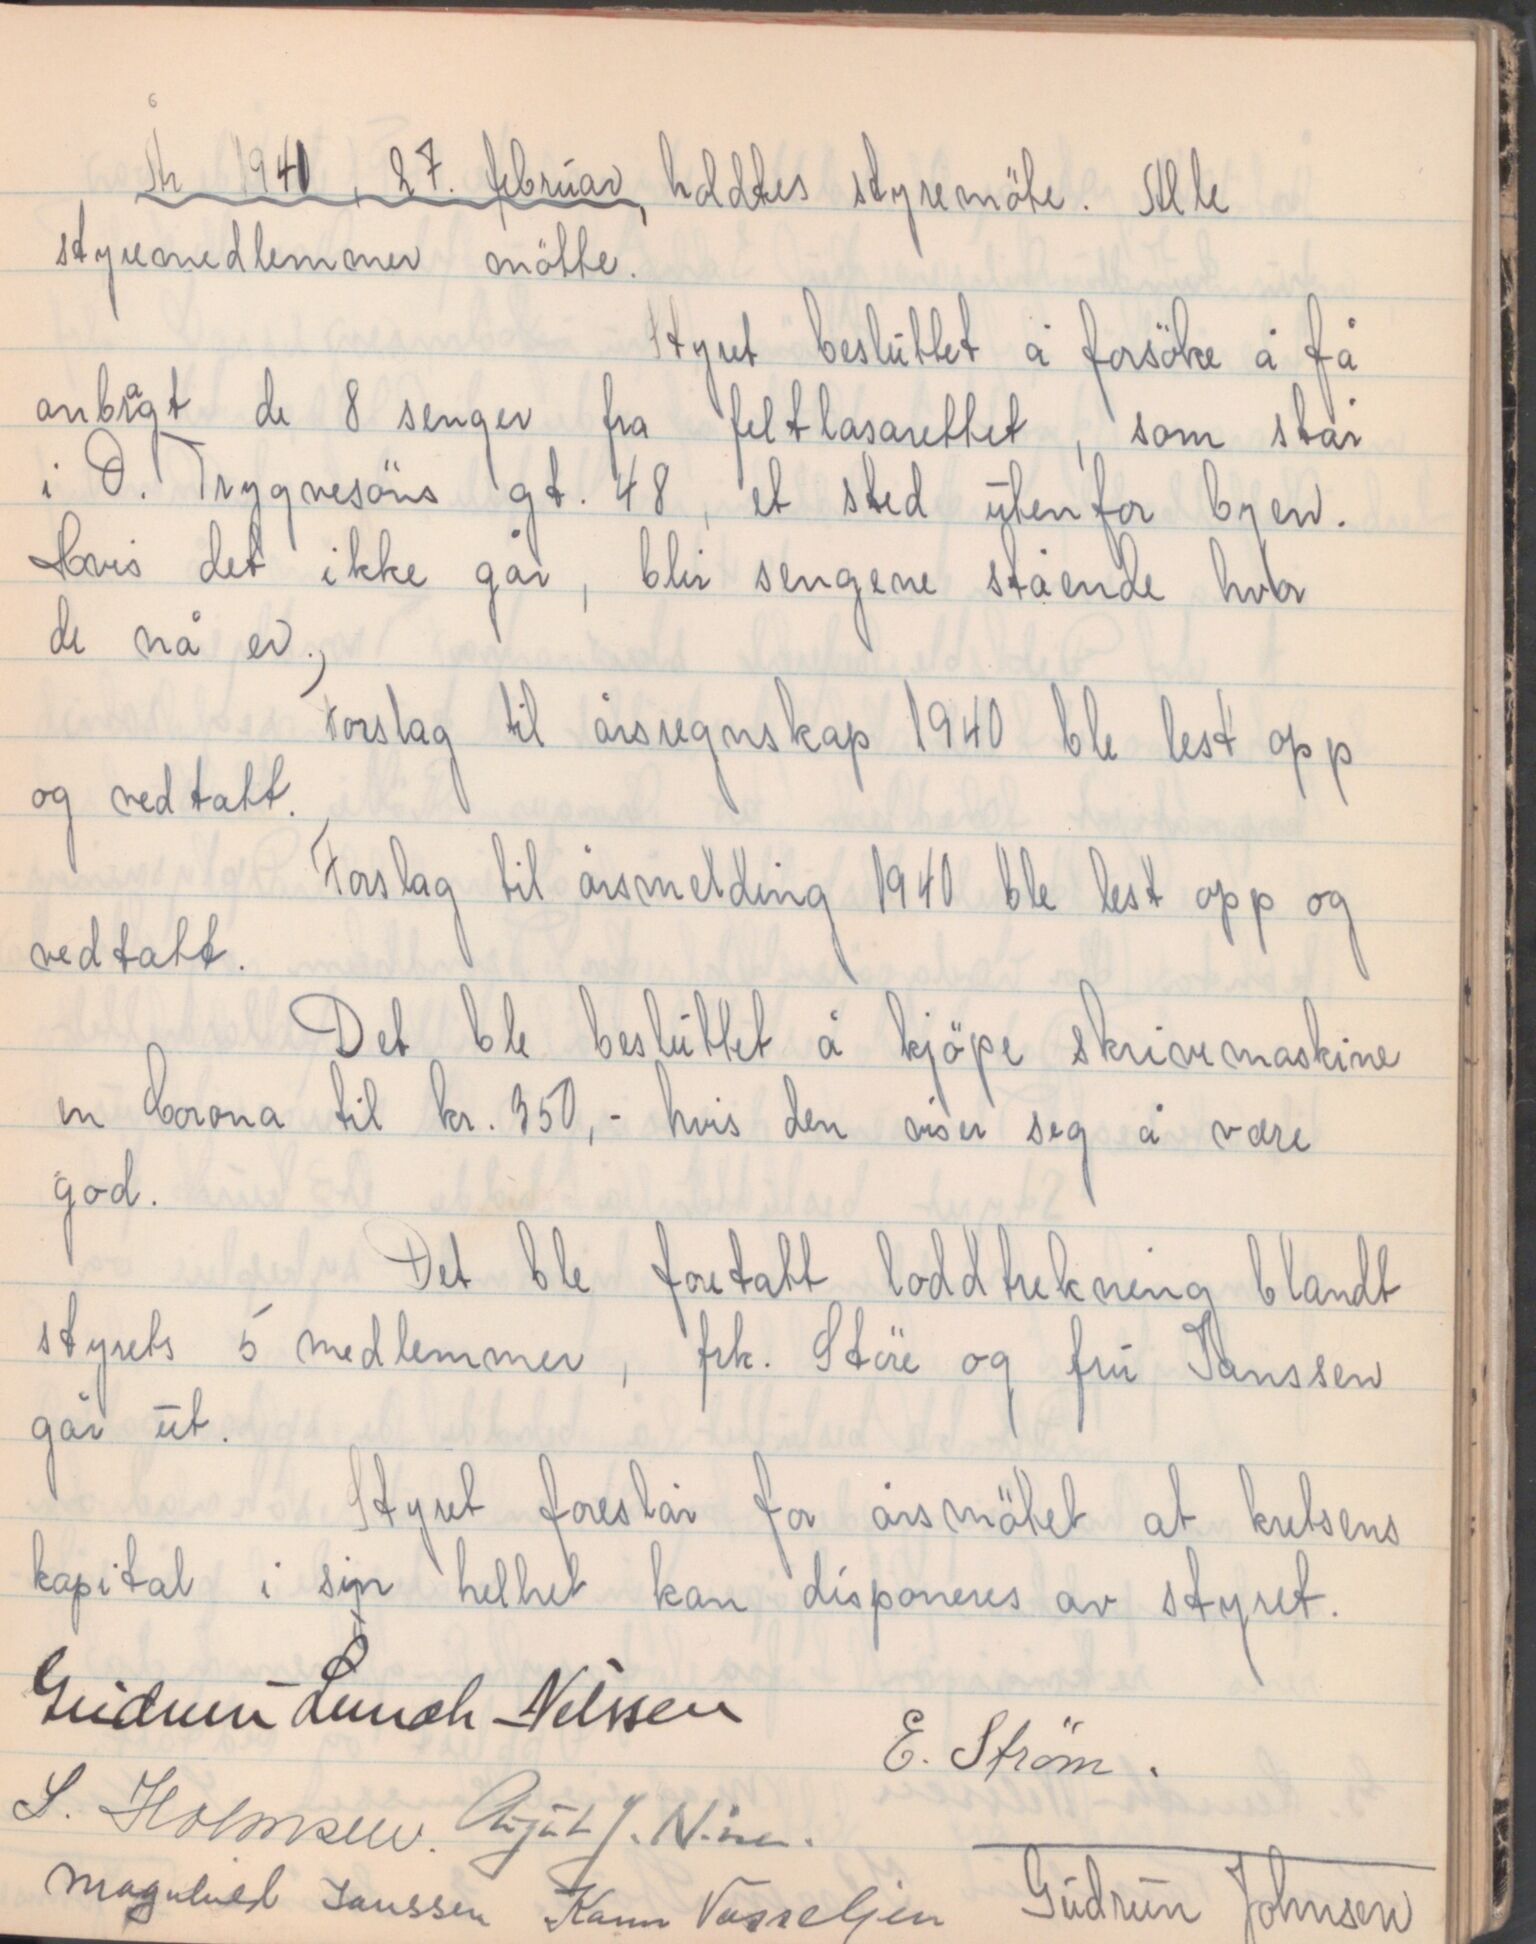 6
År 1941, 27. februar, holdtes styremöte. Alle
styremedlemmer mötte.
Styret besluttet å forsöke å få
anbragt de 8 senger fra feltlasarettet, som står
i O. Trygvesöns gt. 48, et sted utenfor byen.
Hvis det ikke går, blir sengene stående hvor
de nå er.,
Forslag til årsregnskap 1940 ble lest opp
og vedtatt.
Forslag til årsmelding 1940 ble lest opp og
vedtatt.
Det ble besluttet å kjöpe skrivemaskine
en Corona til kr. 350,- hvis den viser seg å være
god.
Det ble foretatt loddtrekning blandt
styrets 5 medlemmer, frk. Störe og fru Janssen
går ut.
Styret foreslår for årsmötet at kretsens
kapital i sin helhet kan disponeres av styret.
Gudrun Lunch-Nilssen
E. Ström.
S. Holmsen.
Magnhild Janssen Karin Vasseljen Gudrun Johnsen